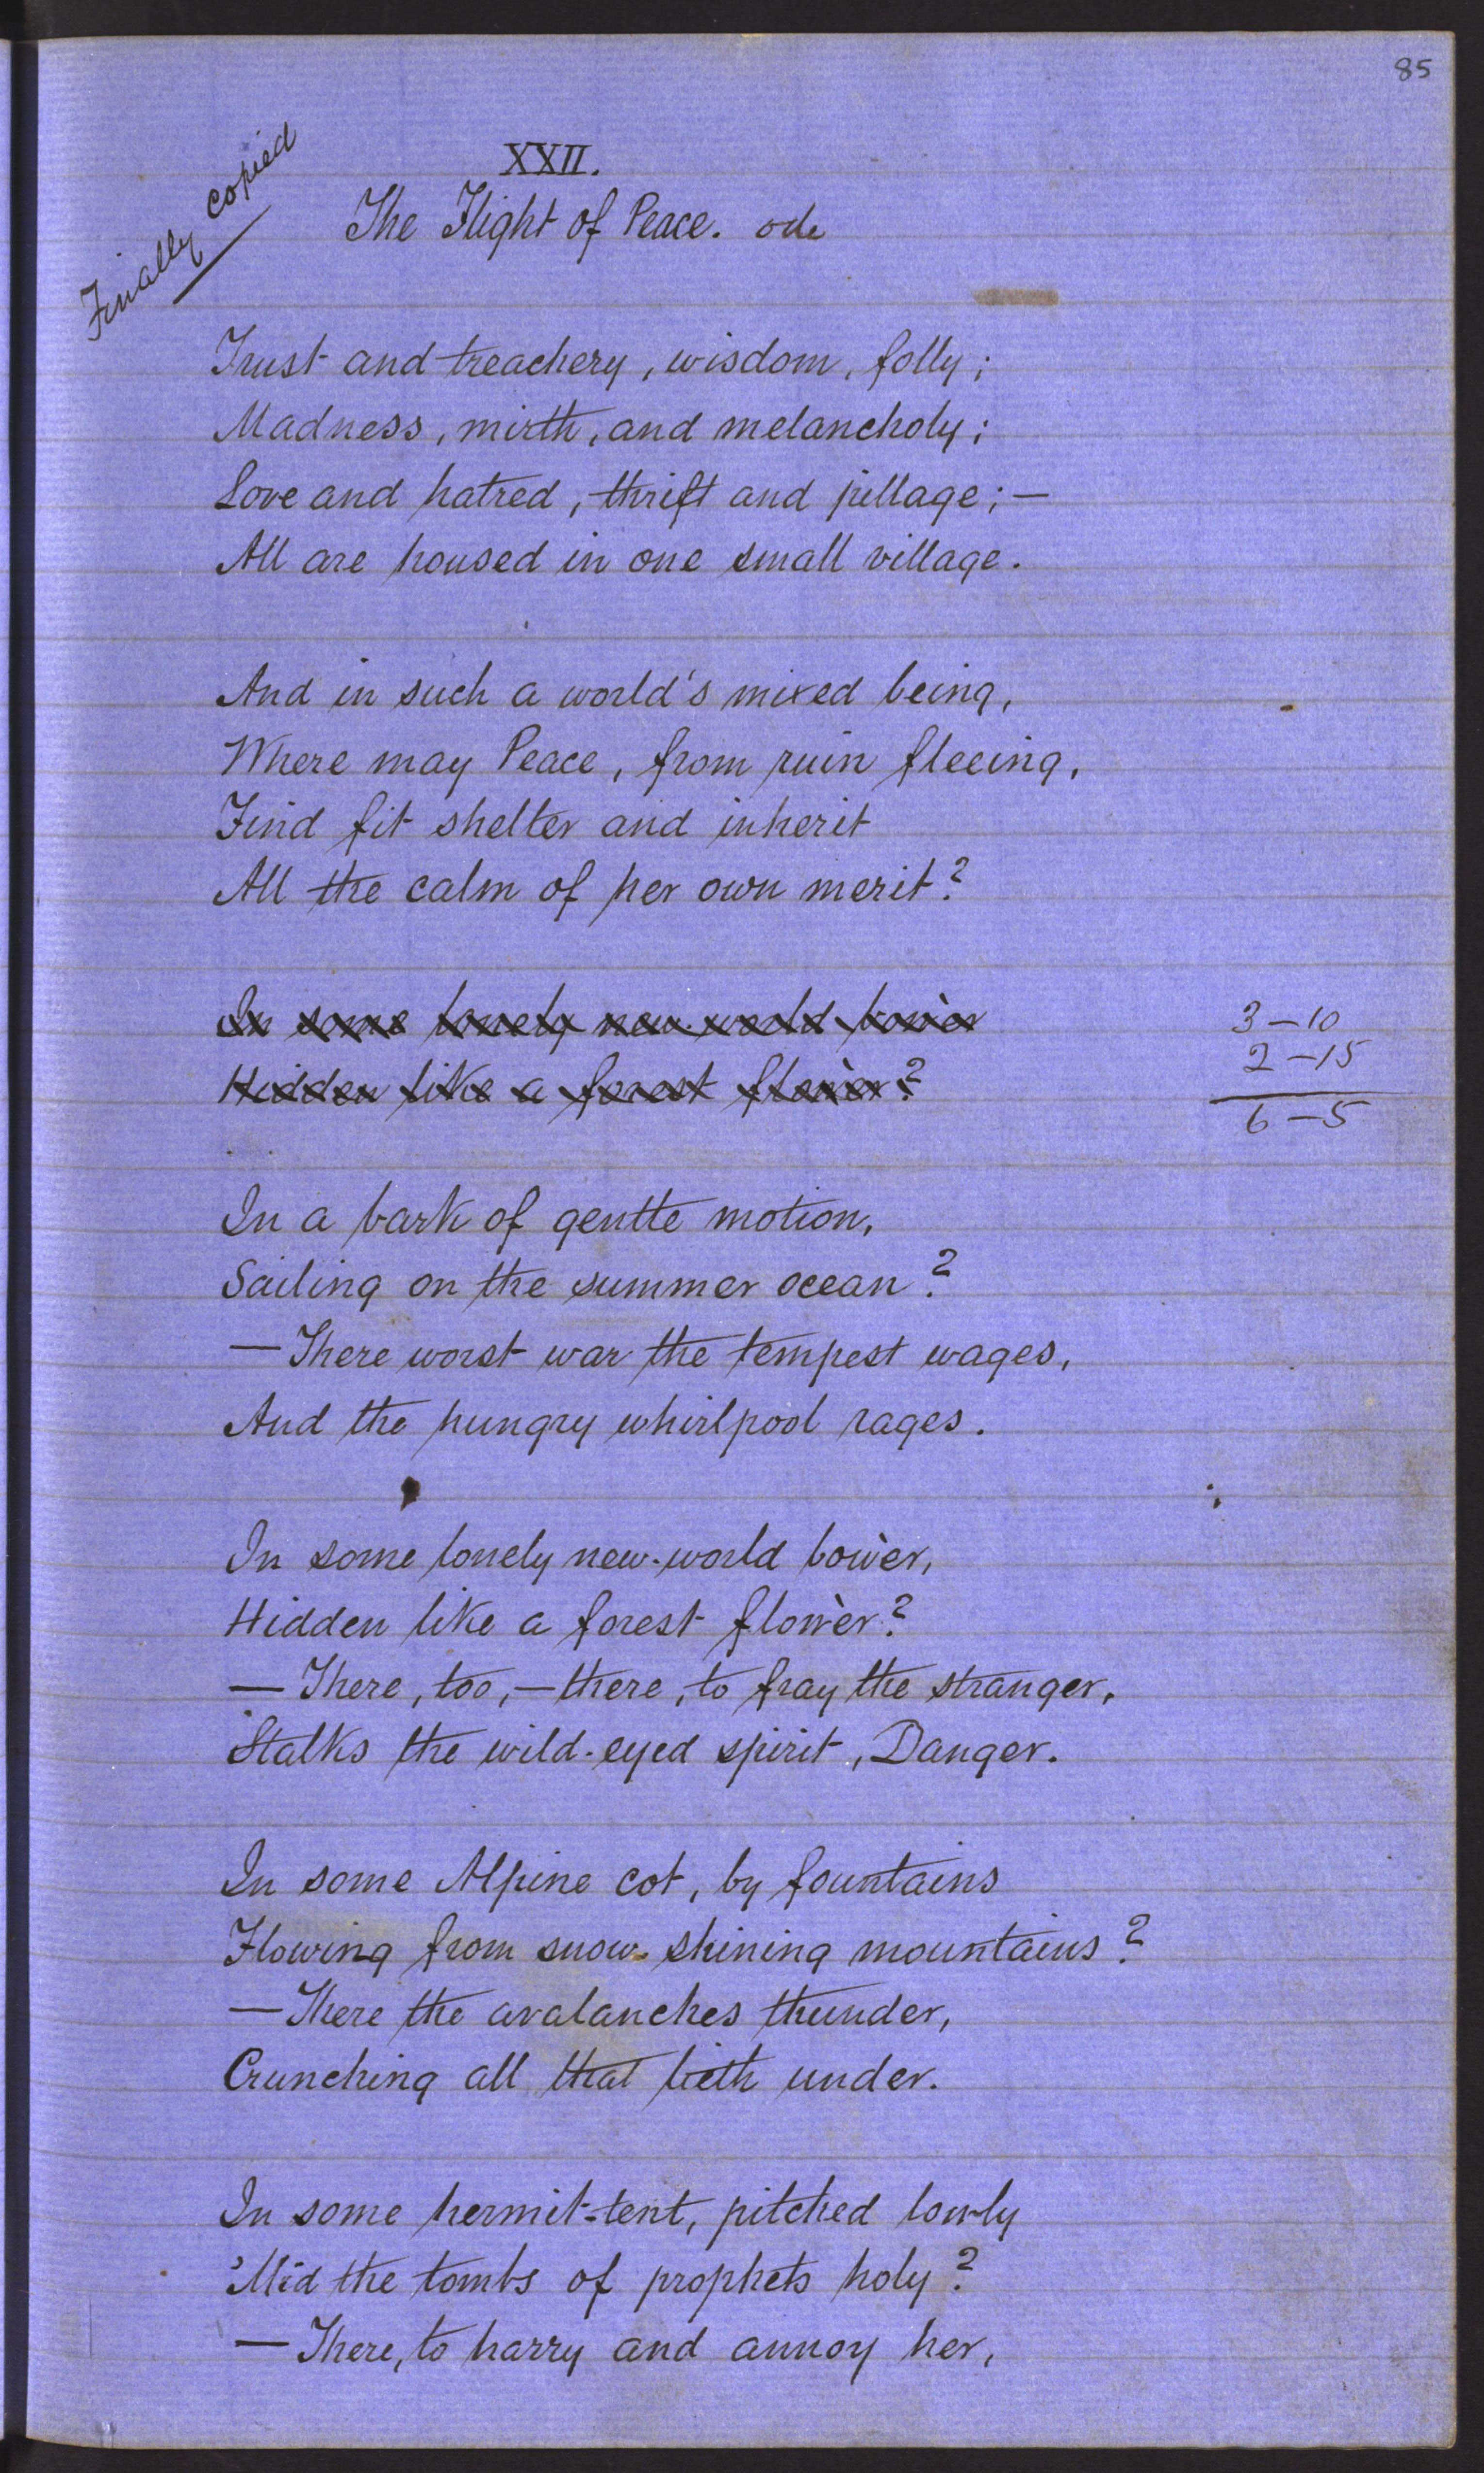 85
Finally copied
XXII.
The Flight of Peace. ode
Trust and treachery, wisdom, folly;
Madness, mirth, and melancholy;
Love and hatred, thrift and pillage; —
All are housed in one small village.
And in such a world's mixed being,
Where may Peace, from ruin fleeing,
Find fit shelter and inherit
All the calm of her own merit?
In some lonely new-world bowèr
Hidden like a forest flowèr?
3 – 10
2 – 15
6 – 5
In a bark of gentle motion,
Sailing on the summer ocean?
— There worst war the tempest wages,
And the hungry whirlpool rages.
In some lonely new-world bowèr,
Hidden like a forest flowèr?
— There, too, — there, to fray the stranger,
Stalks the wild-eyed spirit, Danger.
In some Alpine cot, by fountains
Flowing from snow-shining mountains?
— There the avalanches thunder,
Crunching all that lieth under.
In some hermit-tent, pitched lowly
'Mid the tombs of prophets holy?
— There, to harry and annoy her,